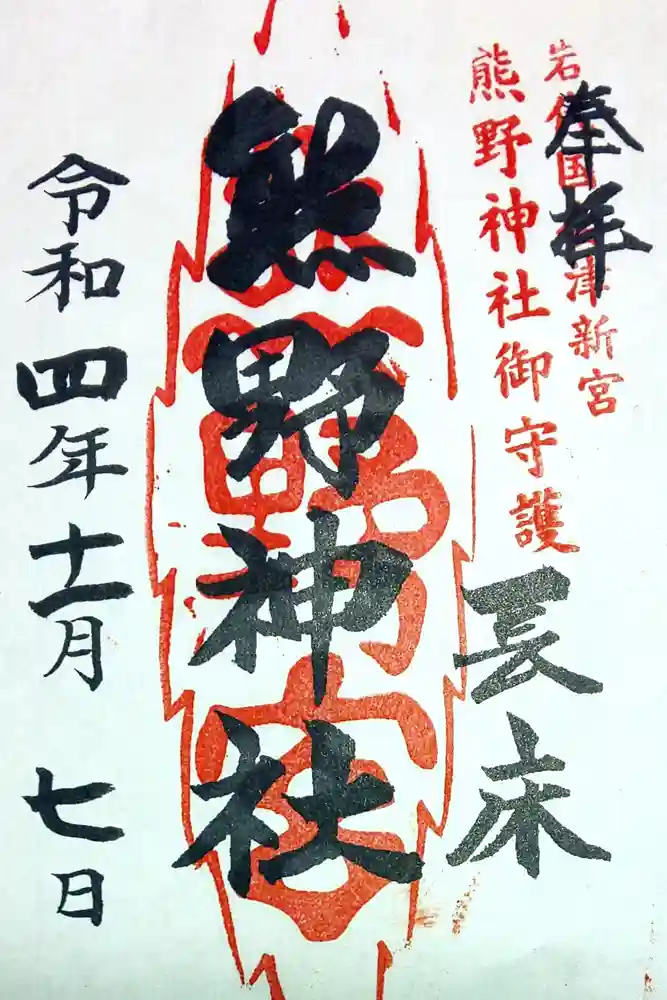 奉拝
岩代国会津新宮
熊野神社御守護
長床
熊野神社
令和四年十一月七日